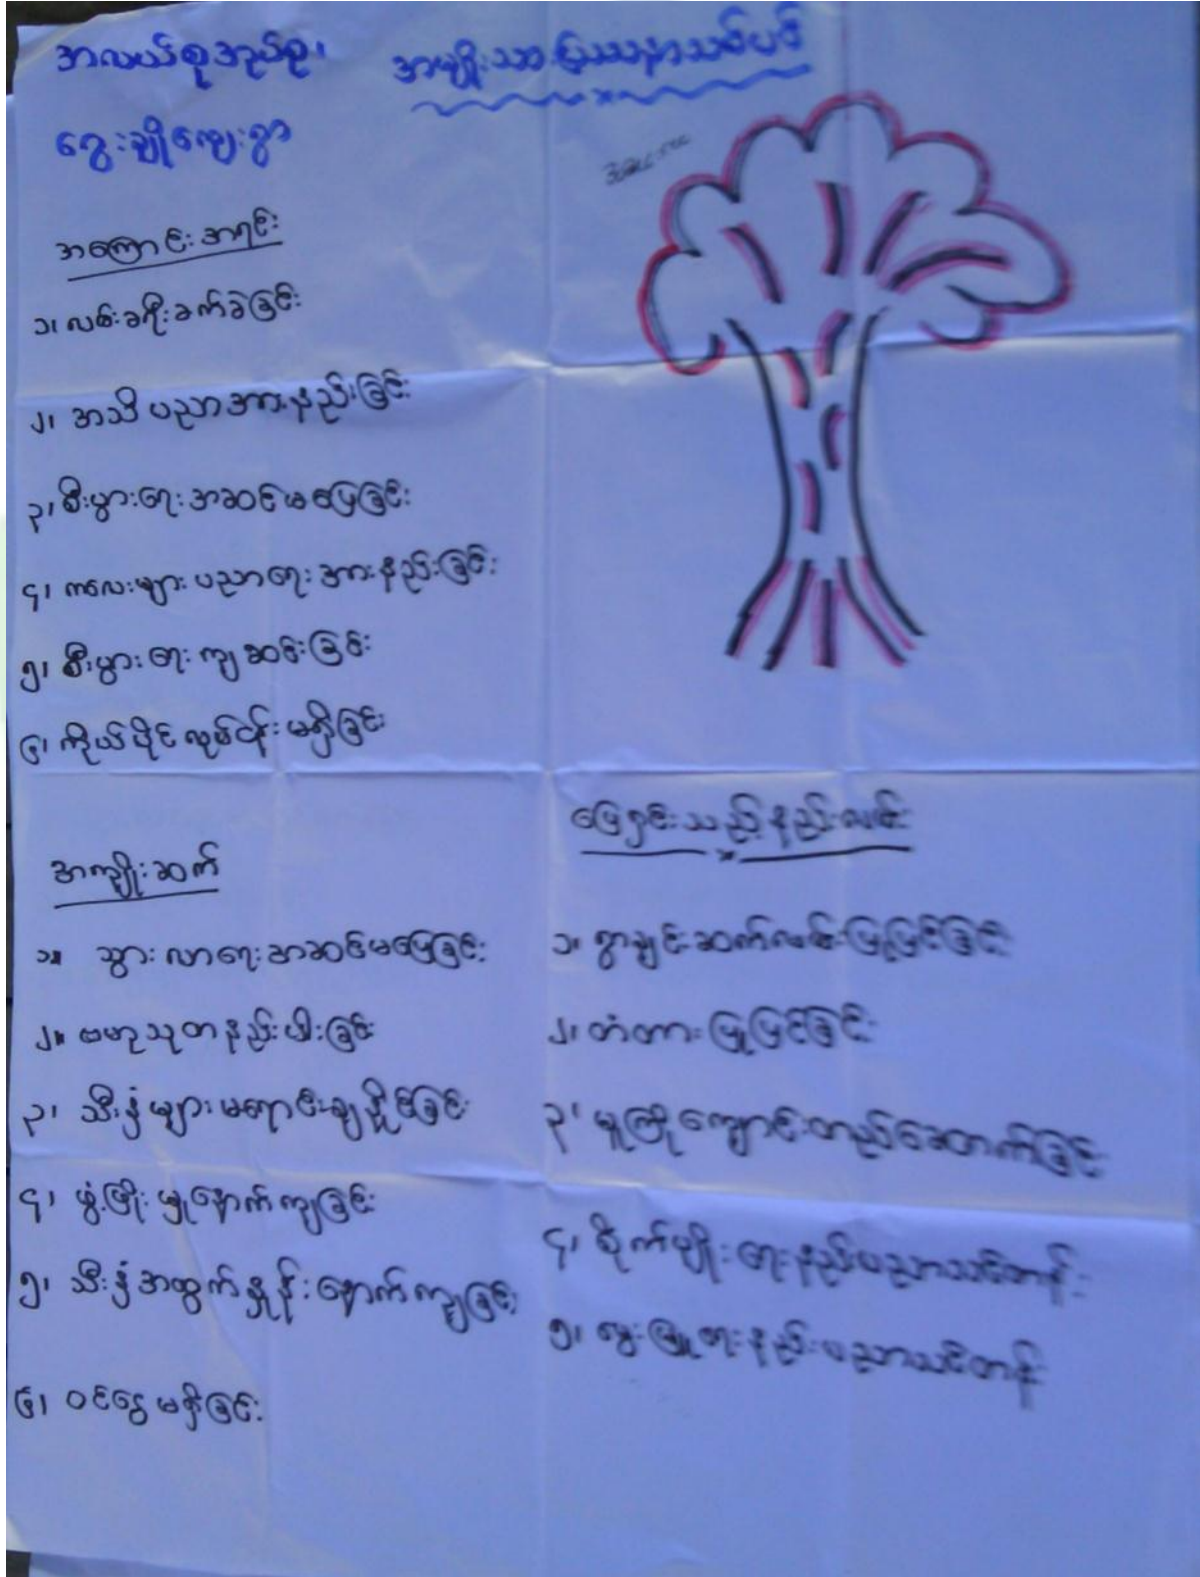 အလယ်စုအုပ်စု၊
အမျိုးသား ပြဿနာသစ်ပင်
ကျေးရွာ
အကြောင်းအရင်း
၁၊ လမ်းခရီးခက်ခဲခြင်း
၂၊ အသိပညာအားနည်းခြင်း
၃၊ စီးပွားရေးအဆင်မပြေခြင်း
၄၊ ကလေးများ ပညာရေး အားနည်းခြင်း
၅၊ စီးပွားရေး ကျဆင်းခြင်း
၆၊ ကိုယ်ပိုင်လုပ်ငန်း မရှိခြင်း
အကျိုးဆက်
၁။ သွားလာရေးအဆင်မပြေခြင်း
၂။ ဗဟုသုတနည်းပါးခြင်း
၃၊ သီးနှံများ မရောင်းချနိုင်ခြင်း
၄၊ ဖွံ့ဖြိုးမှုနောက်ကျခြင်း
၅၊ သီးနှံအထွက်နှုန်းနောက်ကျခြင်း
၆၊ ဝင်ငွေမရှိခြင်း
ဖြေရှင်းသည့်နည်းလမ်း
၁၊ ရွာချင်းဆက်လမ်းပြုပြင်ခြင်း
၂၊ တံတားပြုပြင်ခြင်း
၃၊ မူကြိုကျောင်းတည်ဆောက်ခြင်း
၄၊ စိုက်ပျိုးရေးနည်းပညာသင်တန်း
၅၊ မွေးမြူရေးနည်းပညာသင်တန်း